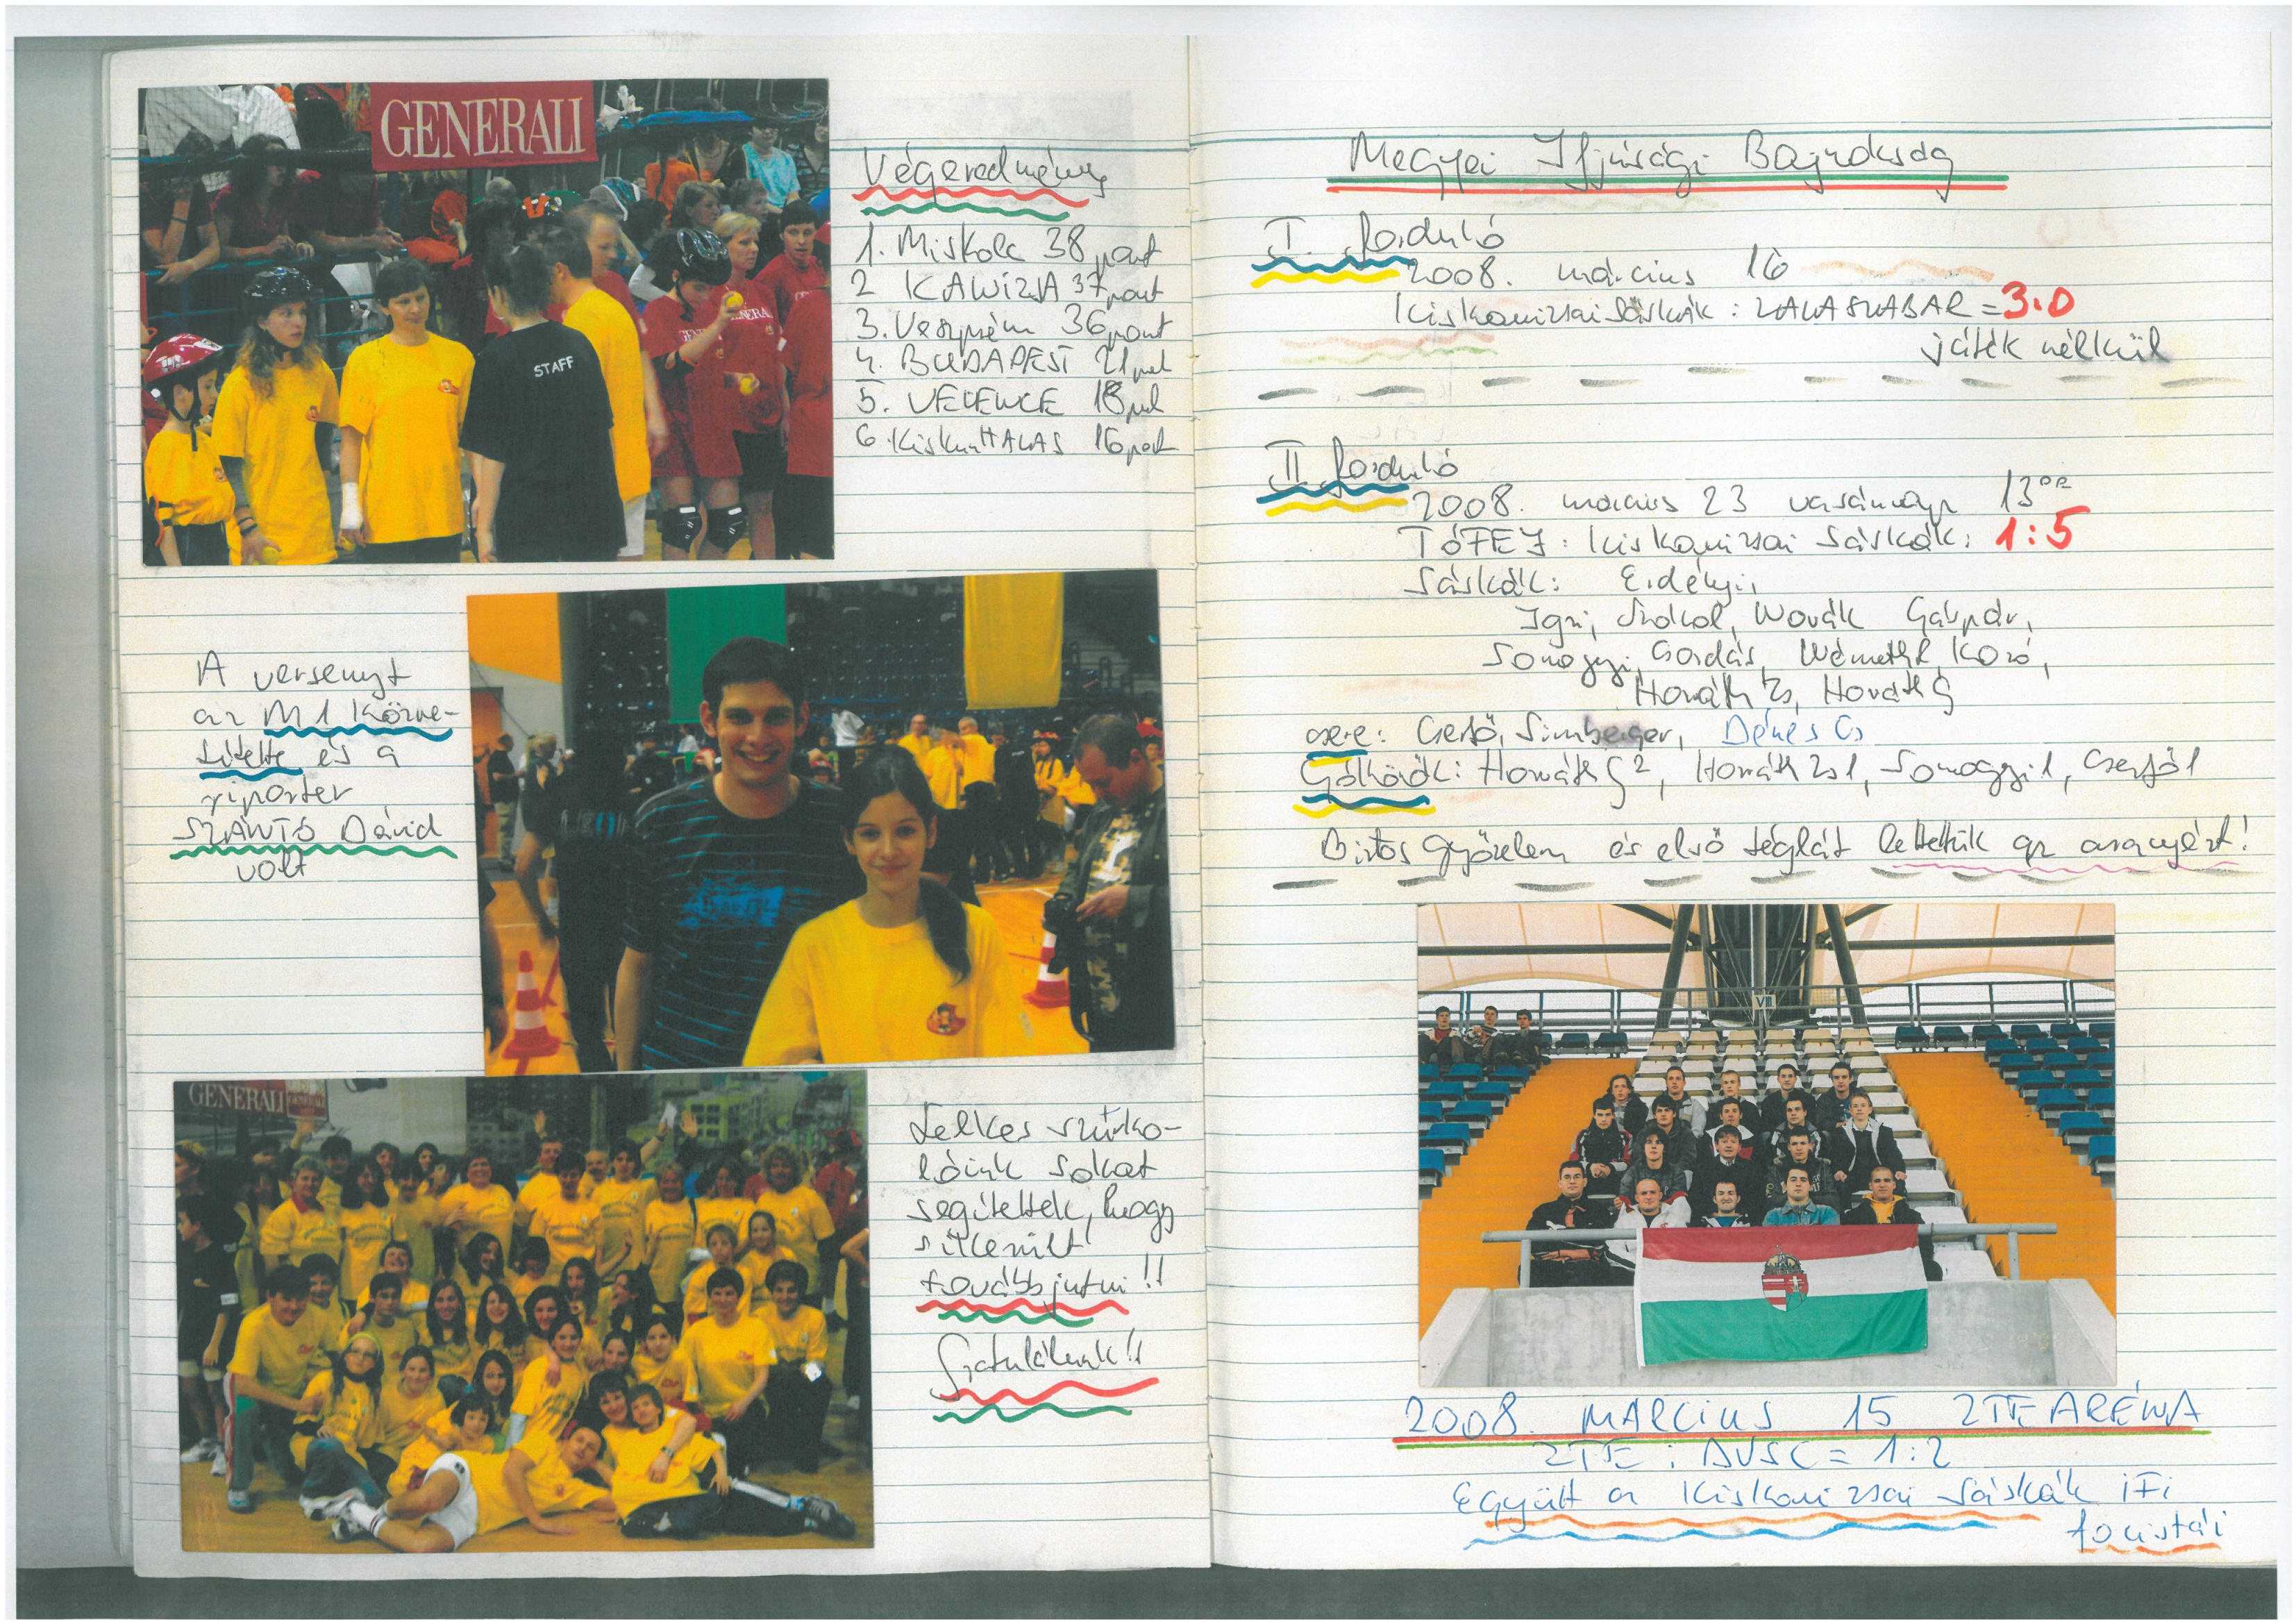 GENERALI
STAFF
Végeredmény
1. Miskolc 38 pont
2 KANIZSA 37 pont
3. Veszprém 36 pont
4. BUDAPEST 21 pont
5. VELENCE 18 pont
6 KiskunHALAS 16 pont
A versenyt
az M1 közve-
títette és a
riporter
SZÁNTÓ Dávid
volt
GENERALI
Lelkes szurko-
lóink sokat
segítettek, hogy
sikerült
továbbjutni!!
Gratulálunk!!
Megyei Ifjúsági Bajnokság
I. forduló
2008. március 16
Kiskanizsai Sáskák : ZALASZABAR = 3:0
játék nélkül
II forduló
2008. március 23 vasárnap 13 ÓR
TÓFEJ : Kiskanizsai Sáskák: 1:5
Sáskák: Erdélyi,
Novák Gáspár,
Somogyi, Gordás, Németh R, Kozó,
Horváth Zs, Horváth G
csere: Cserfő, Simberger, Dénes Cs
Gólkörök: Horváth G 2, Horváth Zs 1, Somogyi 1,
Biztos győzelem és első téglát lettük az aranyért!
VIII
2008. MÁRCIUS 15 ZTE ARÉNA
ZTE : DVSC = 1:2
Együtt a Kiskanizsai Sáskák iFi
focistái